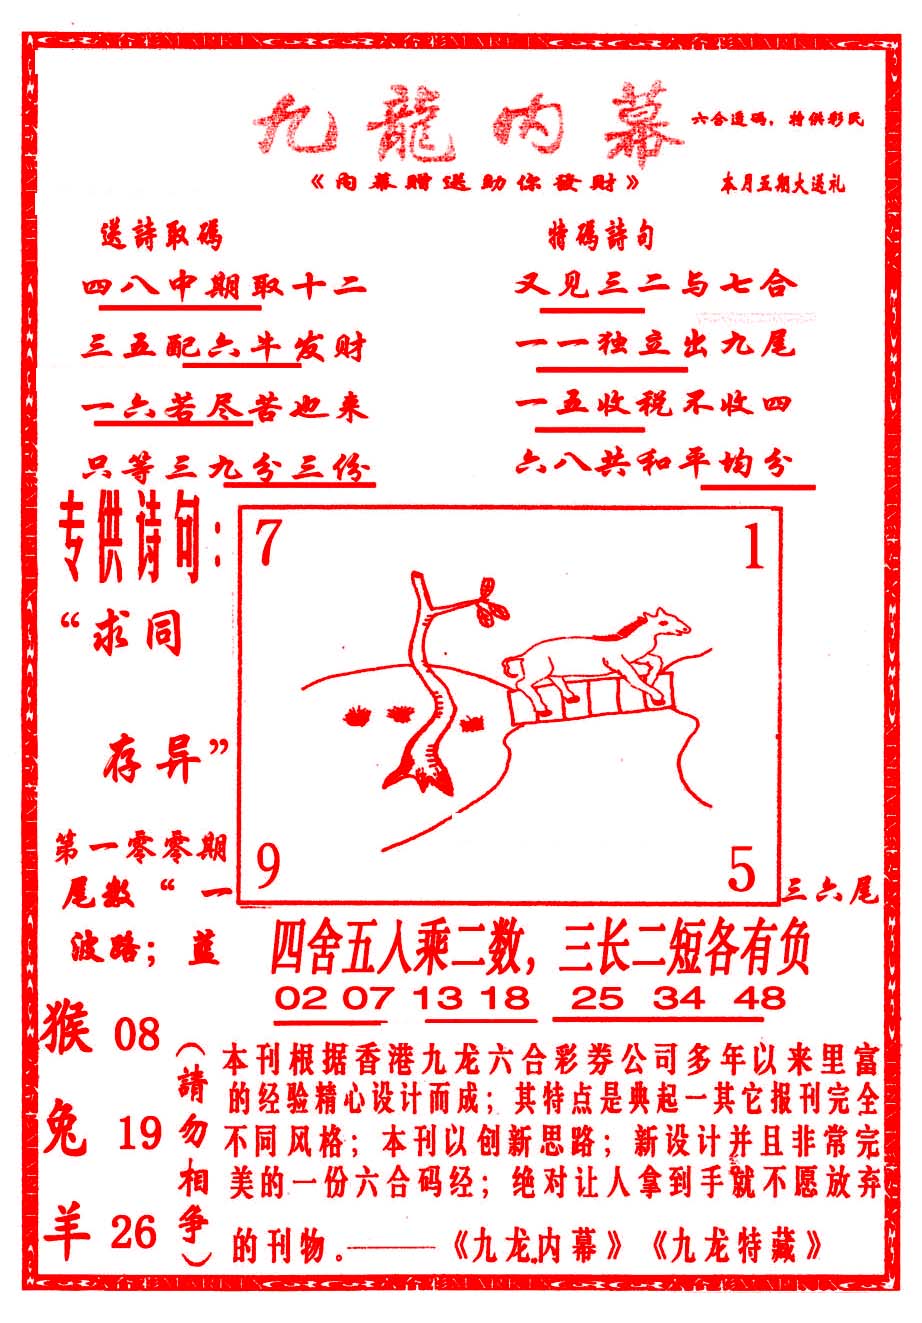 九龍内幕
六合透码，特供彩民
《内幕赠送助你發财》
本月五期大送礼
送詩取碼
四八中期取十二
三五配六牛发财
一六若尽苦也来
只等三九分三份
特碼詩句
又见三二与七合
一一独立出九尾
一五收税不收四
六八共和平均分
专供诗句：
“求同
存异”
7
1
9
5
第一零零期
尾数“一
三六尾
波路；蓝
四舍五人乘二数，三长二短各有负
02 07 13 18 25 34 48
猴 08
兔 19
羊 26
（請勿相争）
本刊根据香港九龙六合彩券公司多年以来里富
的经验精心设计而成；其特点是典起一其它报刊完全
不同风格；本刊以创新思路；新设计并且非常完
美的一份六合码经；绝对让人拿到手就不愿放弃
的刊物。——《九龙内幕》《九龙特藏》